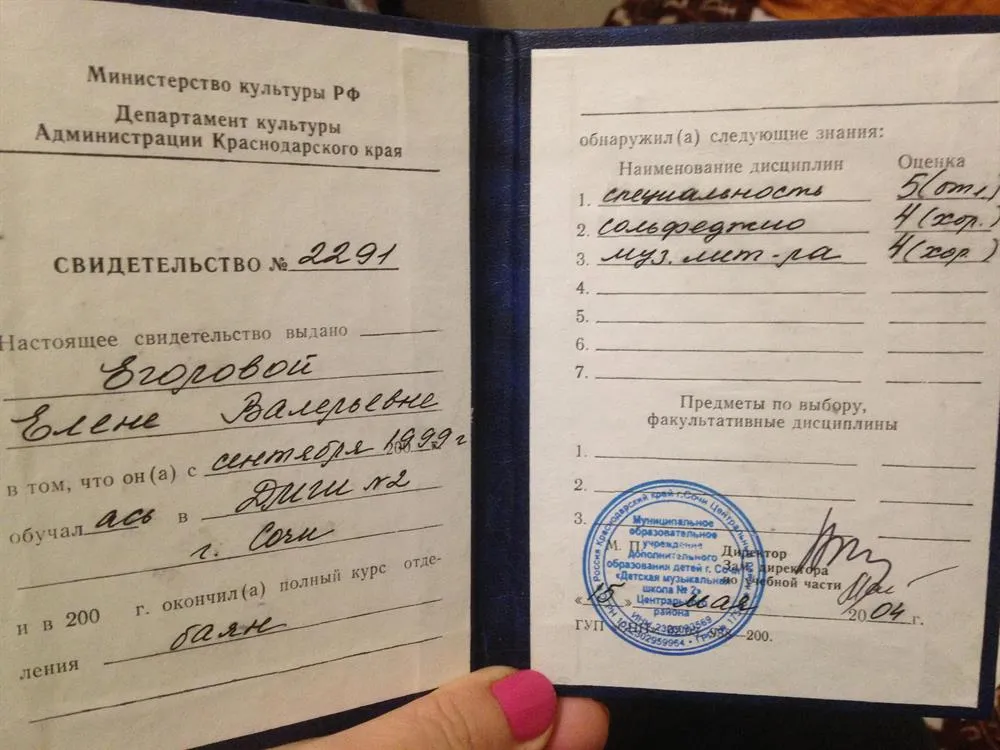 Министерство культуры РФ
Департамент культуры
Администрации Краснодарского края
СВИДЕТЕЛЬСТВО № 2291
Настоящее свидетельство выдано
Егоровой
Елене Валерьевне
в том, что он(а) с сентября 1999 г
обучалась в ДМШ №2
г. Сочи
и в 200 г. окончил(а) полный курс отде-
ления баян
обнаружил(а) следующие знания:
Наименование дисциплин Оценка
1. специальность 5 (отл.)
2. сольфеджио 4 (хор.)
3. муз. лит-ра 4 (хор.)
4.
5.
6.
7.
Предметы по выбору,
факультативные дисциплины
1.
2.
3.
Россия Краснодарский край г.Сочи Центральный
Муниципальное
образовательное
учреждение
дополнительного
образования детей г. Сочи
«Детская музыкальная
школа № 2»
Центрального
района
М. П.
Директор
Зам. директора
по учебной части
«15» мая 2004 г.
ГУП